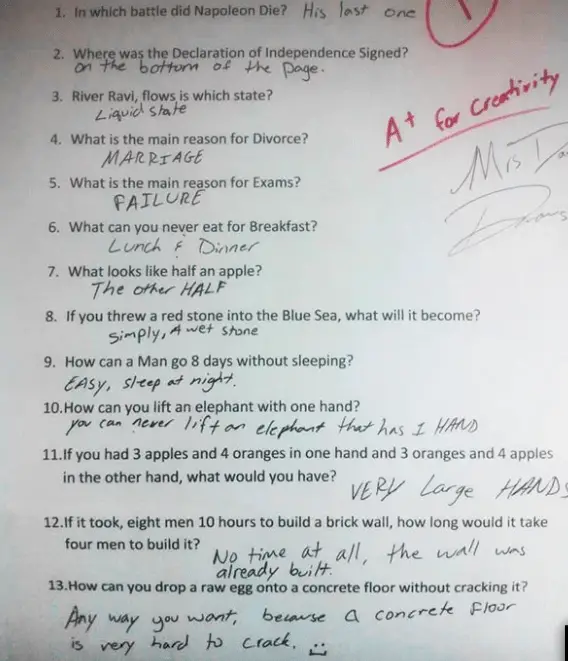 1. In which battle did Napoleon Die? His last one
2. Where was the Declaration of Independence Signed?
on the bottom of the page.
3. River Ravi, flows is which state?
Liquid state
A+ for Creativity
4. What is the main reason for Divorce?
MARRIAGE
Mrs
5. What is the main reason for Exams?
FAILURE
6. What can you never eat for Breakfast?
Lunch & Dinner
7. What looks like half an apple?
The other HALF
8. If you threw a red stone into the Blue Sea, what will it become?
simply, A wet stone
9. How can a Man go 8 days without sleeping?
EASY, sleep at night.
10.How can you lift an elephant with one hand?
you can never lift an elephant that has 1 HAND
11.If you had 3 apples and 4 oranges in one hand and 3 oranges and 4 apples
in the other hand, what would you have?
VERY Large HANDS
12.If it took, eight men 10 hours to build a brick wall, how long would it take
four men to build it?
No time at all, the wall was
already built.
13.How can you drop a raw egg onto a concrete floor without cracking it?
Any way you want, because a concrete floor
is very hard to crack.